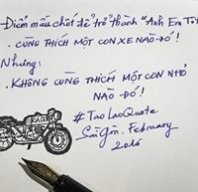 Điểm mấu chốt để trở thành "Anh Em Tốt
. CÙNG THÍCH MỘT CON XE NÀO ĐÓ!
Nhưng:
. KHÔNG CÙNG THÍCH MỘT CON NHỎ
NÀO ĐÓ!
# TaoLaoQuote
Sài Gòn. February
2016